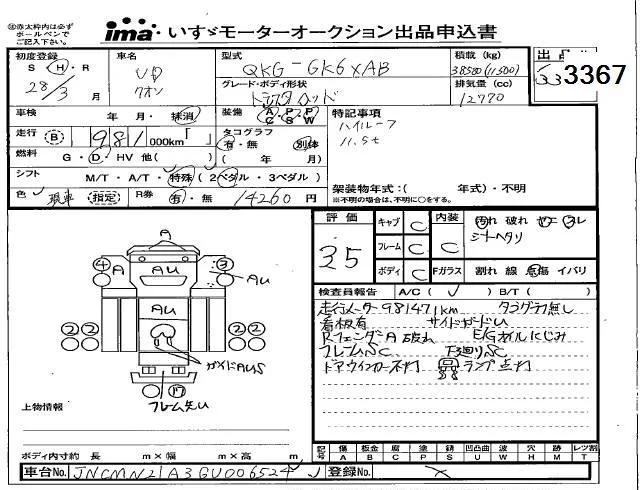 ㊟赤太枠内は必ず
ボールペンで
ご記入下さい。
ima いすゞモーターオークション出品申込書
初度登録 S・H・R 28/3 月
車名 UD クオン
型式 QKG-GK6XAB
グレード・ボディ形状 トラクタヘッド
積載 (kg) 38580(11500)
排気量 (cc) 12770
出品 3367
車検 年 月・抹消
装備 AC PS PW
走行 (B) 981 000km
タコグラフ 有・無 別体 ( 年 月)
燃料 G・D・HV 他( )
シフト M/T・A/T・特殊(2ペダル・3ペダル)
色 現車 (指定) R券 有・無 14260 円
特記事項
ハイルーフ
11.5t
架装物年式:( 年式)・不明
※不明の場合は、不明に○をする。
評価 35
キャブ C 内装 C 汚れ 破れ コゲ スレ
シートヘタリ
フレーム C C
ボディ C Fガラス 割れ 線 点傷 イバリ
検査員報告 A/C( ✓ ) B/T( )
走行メーター981471km タコグラフ無し
看板有 サイドガードU
RフェンダーA 破れ E/Gオイルにじみ
フレームSC 下廻りSC
ドアウインカー不灯 ランプ点灯
A
④ A AU ③ AU
AU
② ② ② ②
ガメイドAUS
⑰
フレーム先い
上物情報
ボディ内寸約 長 m×幅 m×高 m
記号 傷 板金 腐 塗 錆 凹凸曲 波 穴 跡 レンズ割
A B C P S U W H M T
車台No. JNCMN21A3GU006524
登録No.